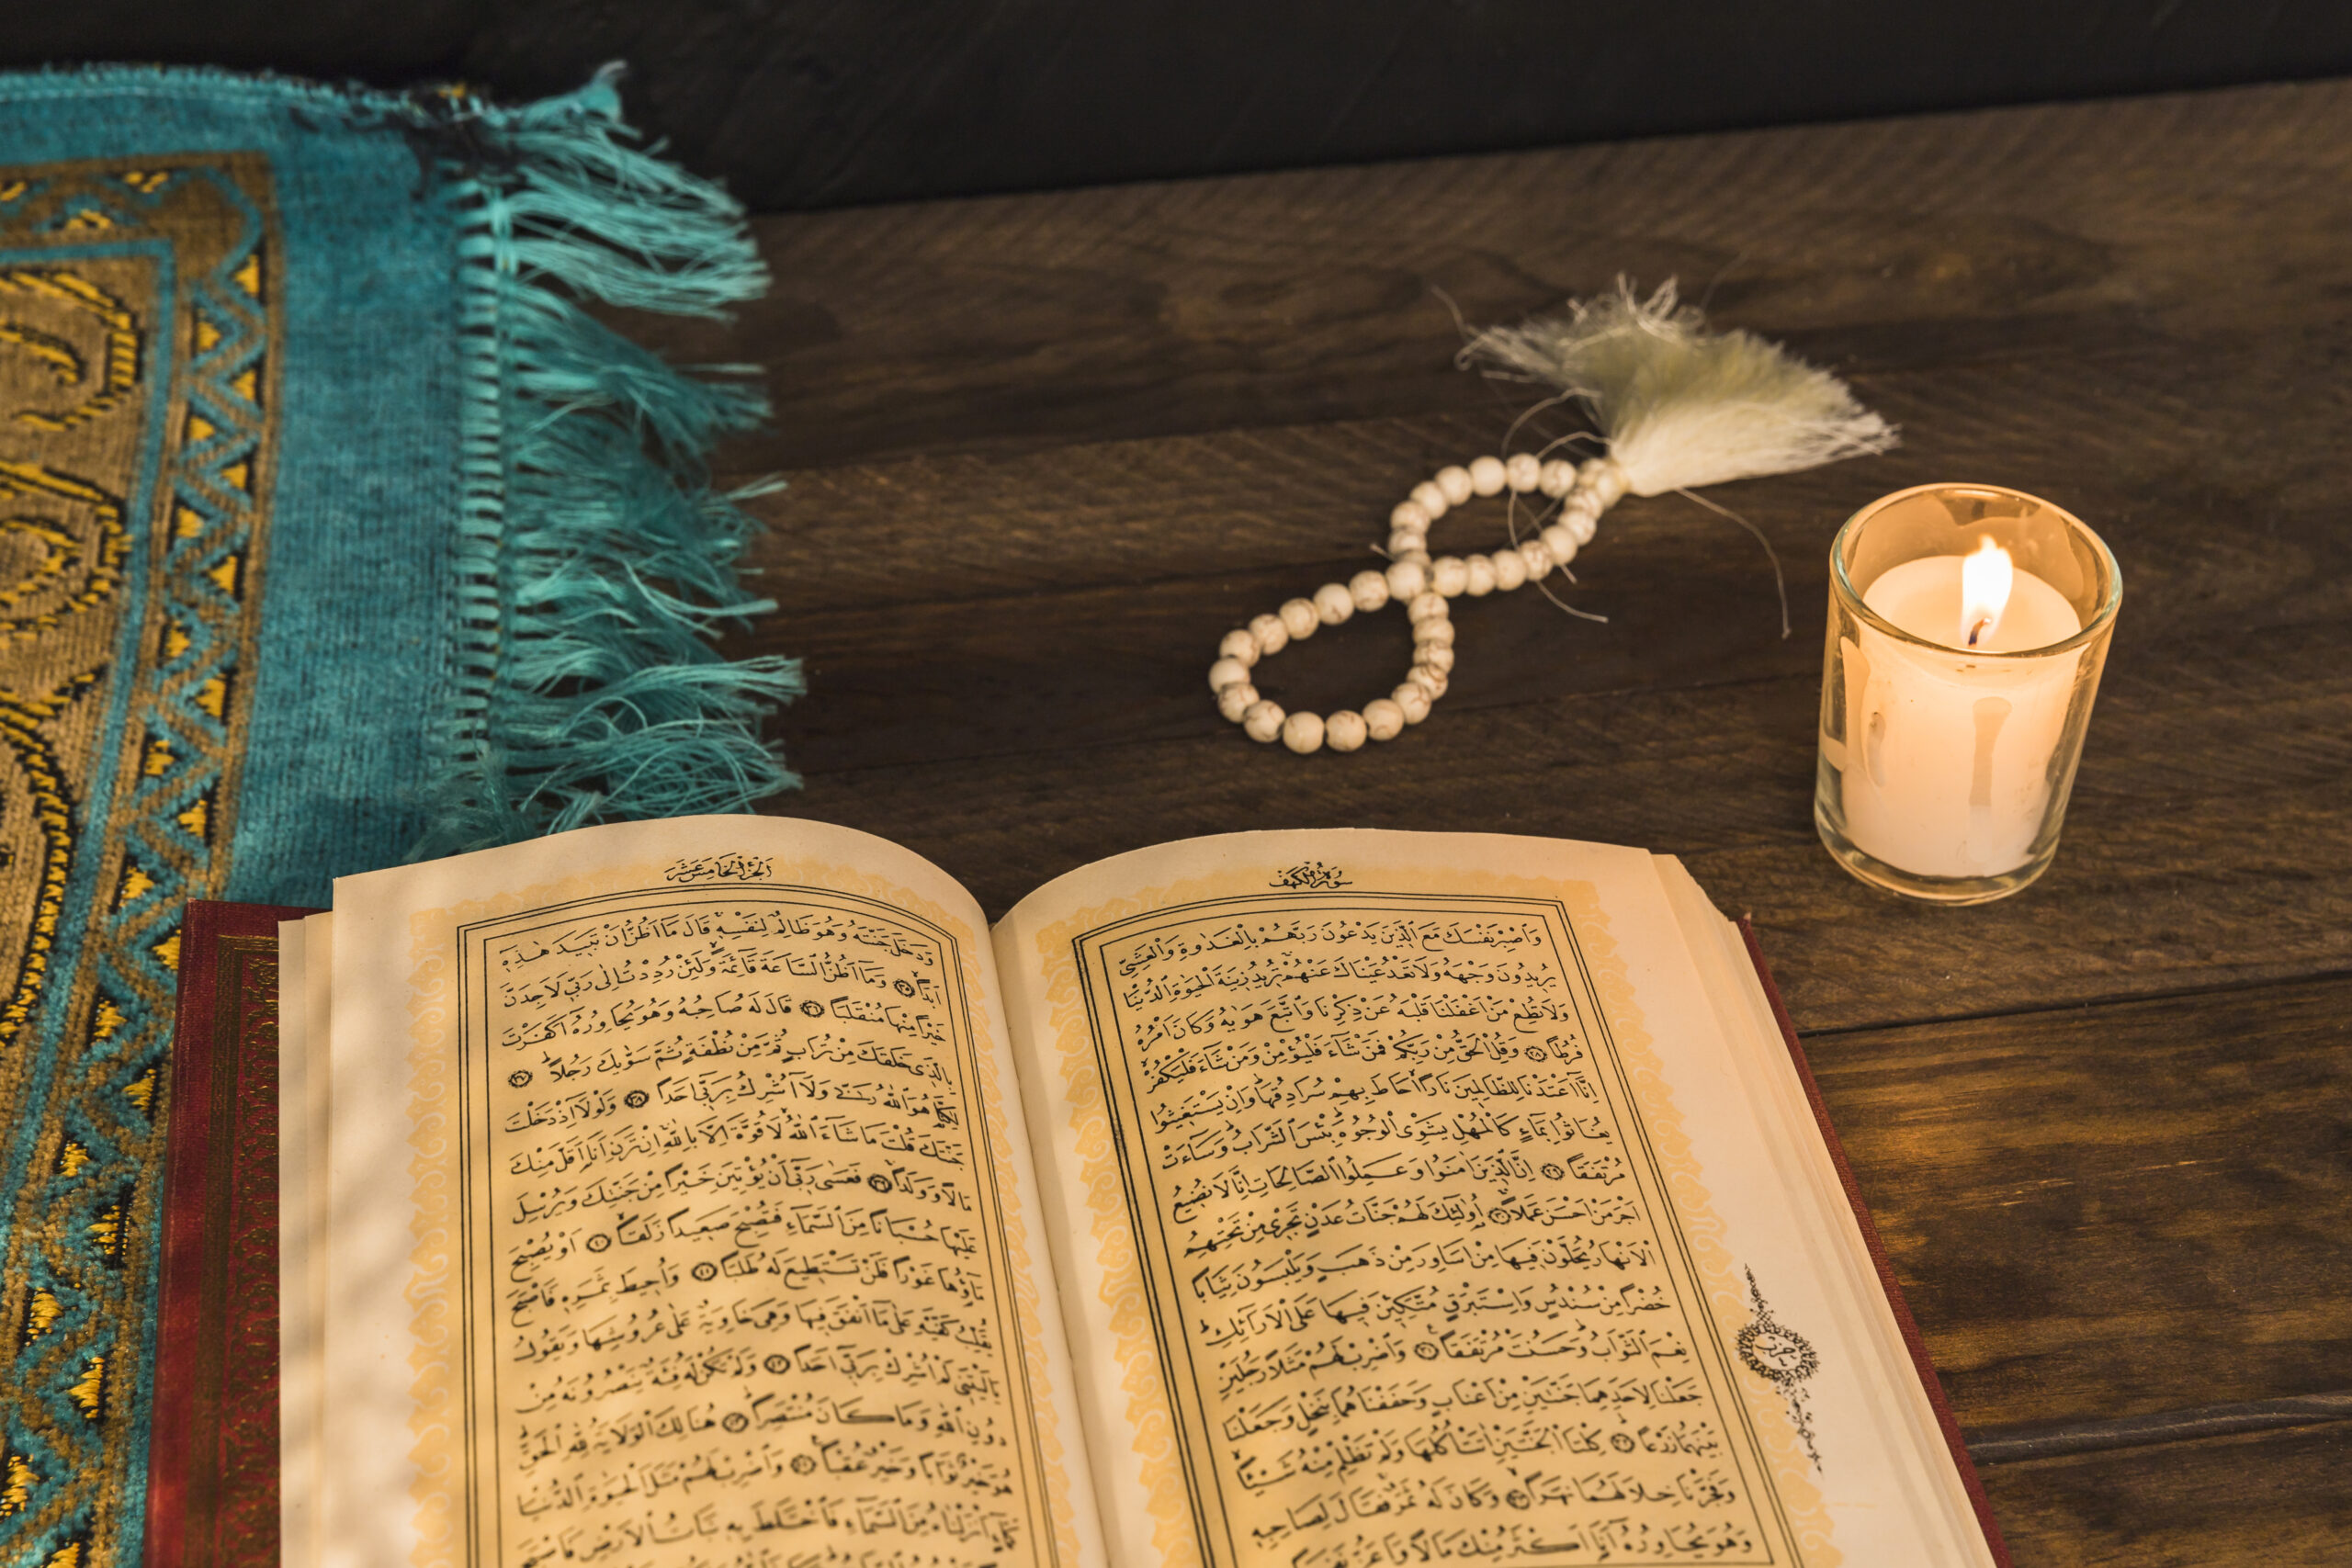 سُورَةُ الْكَهْفِ
وَاصْبِرْ نَفْسَكَ مَعَ الَّذِينَ يَدْعُونَ رَبَّهُمْ بِالْغَدٰوةِ وَالْعَشِيِّ
يُرِيدُونَ وَجْهَهُ وَلَا تَعْدُ عَيْنَاكَ عَنْهُمْ تُرِيدُ زِينَةَ الْحَيٰوةِ الدُّنْيَا
وَلَا تُطِعْ مَنْ اَغْفَلْنَا قَلْبَهُ عَنْ ذِكْرِنَا وَاتَّبَعَ هَوٰيهُ وَكَانَ اَمْرُهُ
فُرُطًا ﴿٢٨﴾ وَقُلِ الْحَقُّ مِنْ رَبِّكُمْ فَمَنْ شَاءَ فَلْيُؤْمِنْ وَمَنْ شَاءَ فَلْيَكْفُرْ
اِنَّا اَعْتَدْنَا لِلظَّالِمِينَ نَارًا اَحَاطَ بِهِمْ سُرَادِقُهَا وَاِنْ يَسْتَغِيثُوا
يُغَاثُوا بِمَاءٍ كَالْمُهْلِ يَشْوِى الْوُجُوهَ بِئْسَ الشَّرَابُ وَسَاءَتْ
مُرْتَفَقًا ﴿٢٩﴾ اِنَّ الَّذِينَ اٰمَنُوا وَعَمِلُوا الصَّالِحَاتِ اِنَّا لَا نُضِيعُ
اَجْرَ مَنْ اَحْسَنَ عَمَلًا ﴿٣٠﴾ اُولٰئِكَ لَهُمْ جَنَّاتُ عَدْنٍ تَجْرِى مِنْ تَحْتِهِمُ
الْاَنْهَارُ يُحَلَّوْنَ فِيهَا مِنْ اَسَاوِرَ مِنْ ذَهَبٍ وَيَلْبَسُونَ ثِيَابًا
خُضْرًا مِنْ سُنْدُسٍ وَاِسْتَبْرَقٍ مُتَّكِئِينَ فِيهَا عَلَى الْاَرَائِكِ
نِعْمَ الثَّوَابُ وَحَسُنَتْ مُرْتَفَقًا ﴿٣١﴾ وَاضْرِبْ لَهُمْ مَثَلًا رَجُلَيْنِ
جَعَلْنَا لِاَحَدِهِمَا جَنَّتَيْنِ مِنْ اَعْنَابٍ وَحَفَفْنَاهُمَا بِنَخْلٍ وَجَعَلْنَا
بَيْنَهُمَا زَرْعًا ﴿٣٢﴾ كِلْتَا الْجَنَّتَيْنِ اٰتَتْ اُكُلَهَا وَلَمْ تَظْلِمْ مِنْهُ شَيْئًا
وَفَجَّرْنَا خِلَالَهُمَا نَهَرًا ﴿٣٣﴾ وَكَانَ لَهُ ثَمَرٌ فَقَالَ لِصَاحِبِهِ
وَهُوَ يُحَاوِرُهُ اَنَا اَكْثَرُ مِنْكَ مَالًا وَاَعَزُّ نَفَرًا
حزب
الْجُزْءُ الْخَامِسَ عَشَرَ
وَدَخَلَ جَنَّتَهُ وَهُوَ ظَالِمٌ لِنَفْسِهِ قَالَ مَا اَظُنُّ اَنْ تَبِيدَ هٰذِهِ
اَبَدًا ﴿٣٥﴾ وَمَا اَظُنُّ السَّاعَةَ قَائِمَةً وَلَئِنْ رُدِدْتُ اِلٰى رَبِّى لَاَجِدَنَّ
خَيْرًا مِنْهَا مُنْقَلَبًا ﴿٣٦﴾ قَالَ لَهُ صَاحِبُهُ وَهُوَ يُحَاوِرُهُ اَكَفَرْتَ
بِالَّذِى خَلَقَكَ مِنْ تُرَابٍ ثُمَّ مِنْ نُطْفَةٍ ثُمَّ سَوّٰيكَ رَجُلًا ﴿٣٧﴾
لٰكِنَّا هُوَ اللّٰهُ رَبِّى وَلَا اُشْرِكُ بِرَبِّى اَحَدًا ﴿٣٨﴾ وَلَوْلَا اِذْ دَخَلْتَ
جَنَّتَكَ قُلْتَ مَا شَاءَ اللّٰهُ لَا قُوَّةَ اِلَّا بِاللّٰهِ اِنْ تَرَنِ اَنَا اَقَلَّ مِنْكَ
مَالًا وَوَلَدًا ﴿٣٩﴾ فَعَسٰى رَبِّى اَنْ يُؤْتِيَنِ خَيْرًا مِنْ جَنَّتِكَ وَيُرْسِلَ
عَلَيْهَا حُسْبَانًا مِنَ السَّمَاءِ فَتُصْبِحَ صَعِيدًا زَلَقًا ﴿٤٠﴾ اَوْ يُصْبِحَ
مَاؤُهَا غَوْرًا فَلَنْ تَسْتَطِيعَ لَهُ طَلَبًا ﴿٤١﴾ وَاُحِيطَ بِثَمَرِهِ فَاَصْبَحَ
يُقَلِّبُ كَفَّيْهِ عَلٰى مَا اَنْفَقَ فِيهَا وَهِىَ خَاوِيَةٌ عَلٰى عُرُوشِهَا وَيَقُولُ
يَا لَيْتَنِى لَمْ اُشْرِكْ بِرَبِّى اَحَدًا ﴿٤٢﴾ وَلَمْ تَكُنْ لَهُ فِئَةٌ يَنْصُرُونَهُ مِنْ
دُونِ اللّٰهِ وَمَا كَانَ مُنْتَصِرًا ﴿٤٣﴾ هُنَالِكَ الْوَلَايَةُ لِلّٰهِ الْحَقِّ
هُوَ خَيْرٌ ثَوَابًا وَخَيْرٌ عُقْبًا ﴿٤٤﴾ وَاضْرِبْ لَهُمْ مَثَلَ الْحَيٰوةِ الدُّنْيَا
كَمَاءٍ اَنْزَلْنَاهُ مِنَ السَّمَاءِ فَاخْتَلَطَ بِهِ نَبَاتُ الْاَرْضِ فَاَصْبَحَ